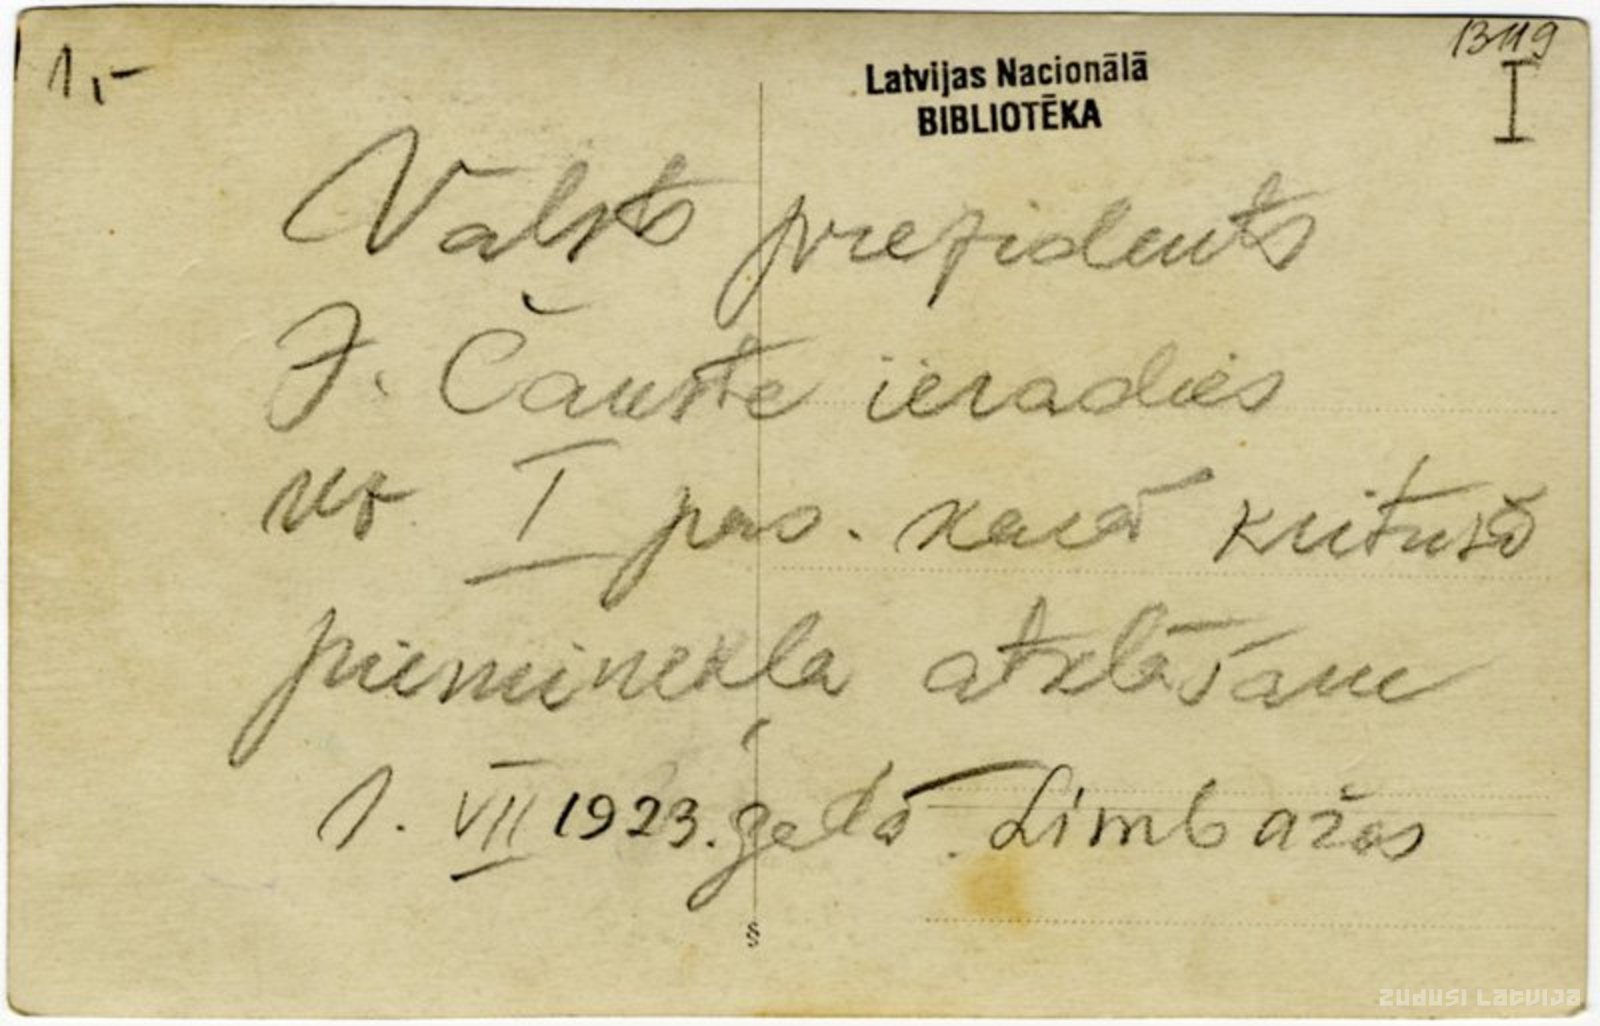 1,-
13119
I
Latvijas Nacionālā
BIBLIOTĒKA
Valsts prezidents
J. Čakste ieradies
uz I pas. karā kritušo
pieminekļa atklāšanu
1. VII 1923. gadā. Limbažos
§
ZUDUSI LATVIJA